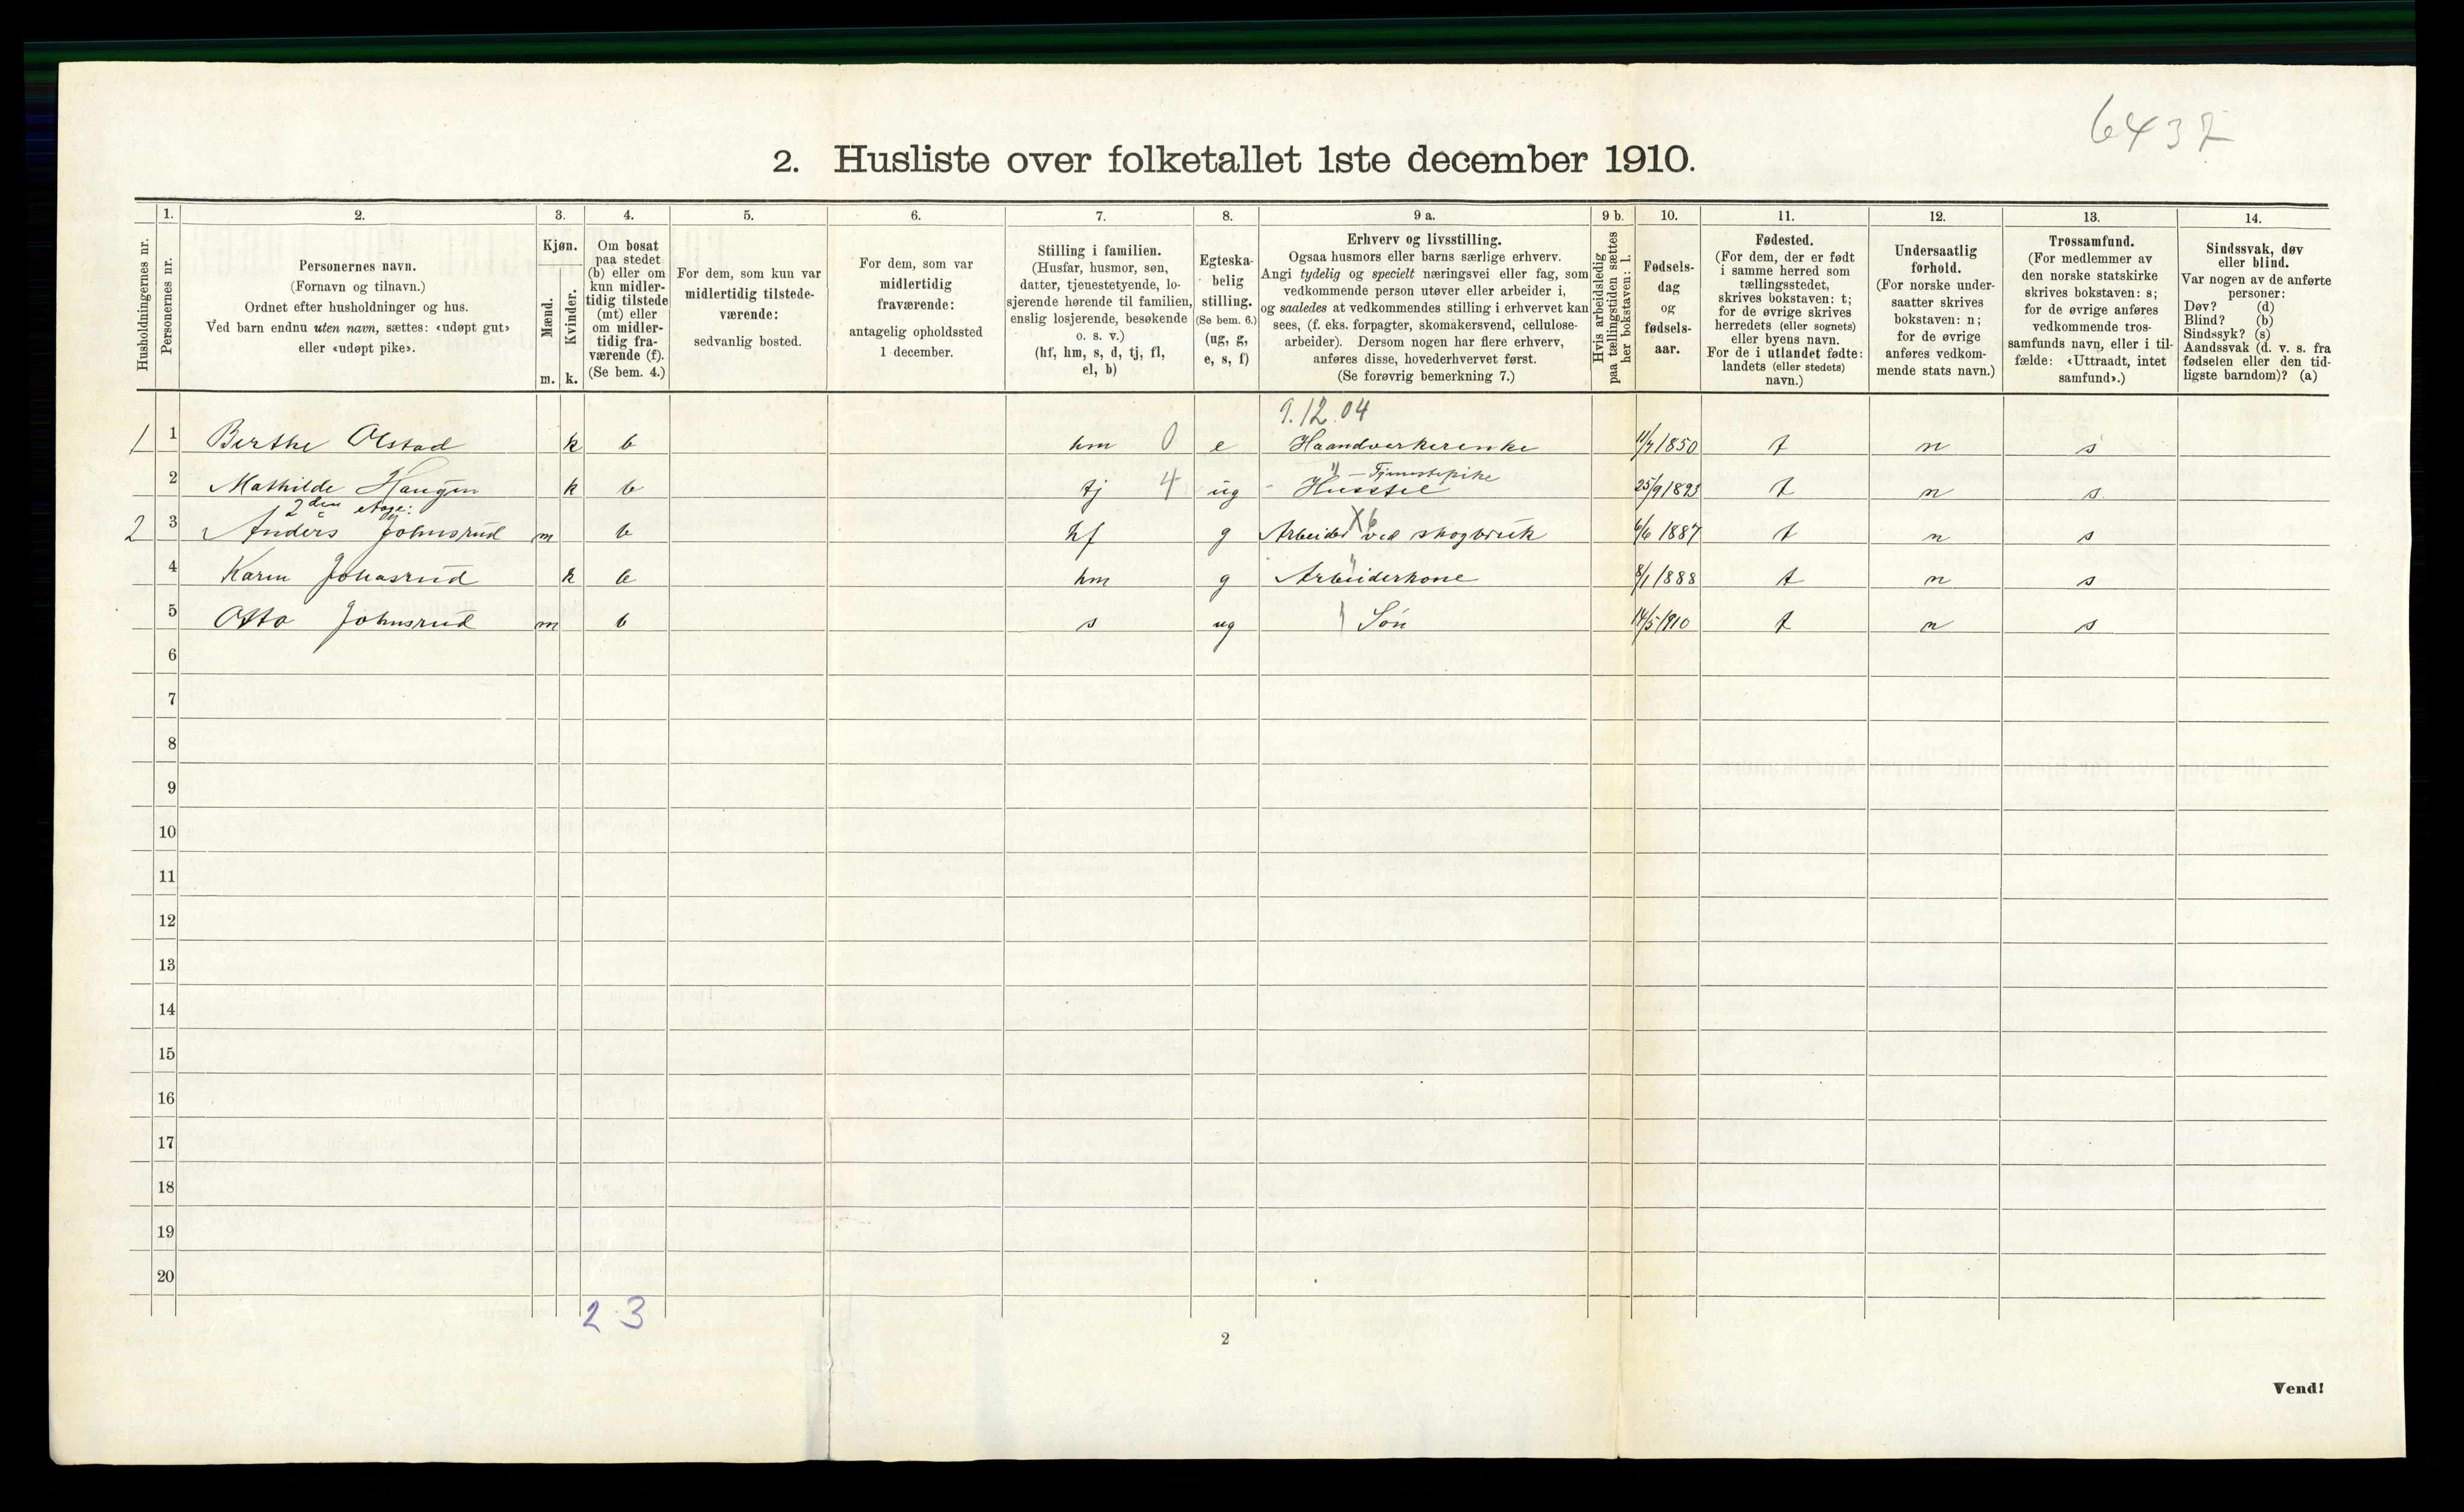 6437
2. Husliste over folketallet 1ste december 1910.
Husholdningernes nr.
1. Personernes nr.
2. Personernes navn. (Fornavn og tilnavn.) Ordnet efter husholdninger og hus. Ved barn endnu uten navn, sættes: «udøpt gut» eller «udøpt pike».
3. Kjøn. Mænd. m. Kvinder. k.
4. Om bosat paa stedet (b) eller om kun midlertidig tilstede (mt) eller om midlertidig fraværende (f). (Se bem. 4.)
5. For dem, som kun var midlertidig tilstedeværende: sedvanlig bosted.
6. For dem, som var midlertidig fraværende: antagelig opholdssted 1 december.
7. Stilling i familien. (Husfar, husmor, søn, datter, tjenestetyende, losjerende hørende til familien, enslig losjerende, besøkende o. s. v.) (hf, hm, s, d, tj, fl, el, b)
8. Egteskabelig stilling. (Se bem. 6.) (ug, g, e, s, f)
9 a. Erhverv og livsstilling. Ogsaa husmors eller barns særlige erhverv. Angi tydelig og specielt næringsvei eller fag, som vedkommende person utøver eller arbeider i, og saaledes at vedkommendes stilling i erhvervet kan sees, (f. eks. forpagter, skomakersvend, cellulosearbeider). Dersom nogen har flere erhverv, anføres disse, hovederhvervet først. (Se forøvrig bemerkning 7.)
9 b. Hvis arbeidsledig paa tællingstiden sættes her bokstaven: l.
10. Fødselsdag og fødselsaar.
11. Fødested. (For dem, der er født i samme herred som tællingsstedet, skrives bokstaven: t; for de øvrige skrives herredets (eller sognets) eller byens navn. For de i utlandet fødte: landets (eller stedets) navn.)
12. Undersaatlig forhold. (For norske undersaatter skrives bokstaven: n; for de øvrige anføres vedkommende stats navn.)
13. Trossamfund. (For medlemmer av den norske statskirke skrives bokstaven: s; for de øvrige anføres vedkommende trossamfunds navn, eller i tilfælde: «Uttraadt, intet samfund».)
14. Sindssvak, døv eller blind. Var nogen av de anførte personer: Døv? (d) Blind? (b) Sindssyk? (s) Aandssvak (d. v. s. fra fødselen eller den tidligste barndom)? (a)
9.12.04
1 1 Berthe Olstad k b hm 0 e Haandverkerenke 11/7 1850 t n s
" — Tjenestepike
2 Mathilde Haugen k b tj 4 ug - Husstel 25/9 1893 t n s
2den etage:
2 3 Anders Johnsrud m b hf g Arbeider ved skogbruk X6 6/6 1887 t n s
4 Karen Johnsrud k b hm g Arbeiderkone " 8/1 1888 t n s
5 Otto Johnsrud m b s ug Søn 14/5 1910 t n s
6
7
8
9
10
11
12
13
14
15
16
17
18
19
20
2 3
2
Vend!